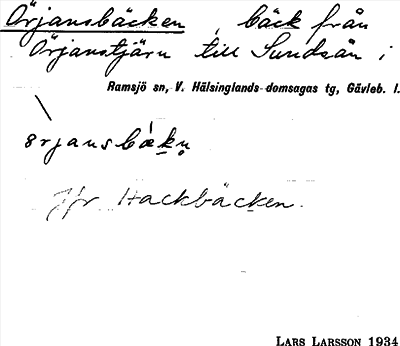 Örjansbäcken, bäck från
Örjanstjärn till Sundsån i
Ramsjö sn, V. Hälsinglands domsagas tg, Gävleb. l.
örjansbæ̀kn̥
Jfr Hackbäcken.
LARS LARSSON 1934